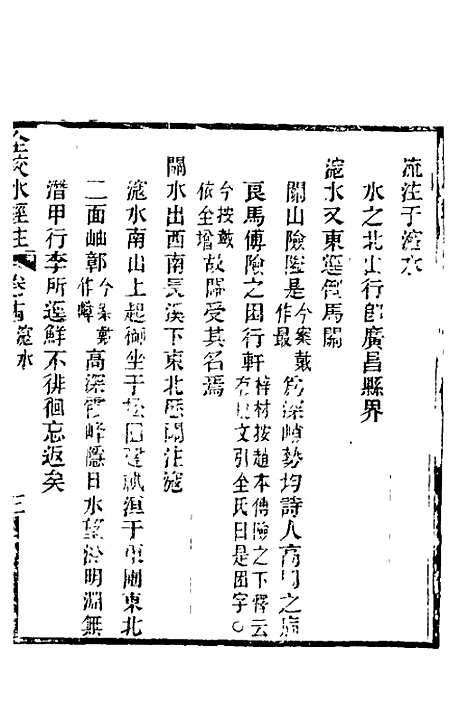 流注于滱水
水之北出行即廣昌縣界
滱水又東逕倒馬關
關山險隘是今案戴作最為深峭勢均詩人高岡之病
良馬傅險之困行軒梓材按趙本傅險之下釋云文引全氏曰是困字〇
今按戴依全增故關受其名焉
關水出西南長溪下東北歷關注滱
滱水南山上起御坐于松園建祇洹于東圃東北
二面岫鄣今案戴作嶂高深霞峰隱日水望澄明淵無
潛甲行李所逕鮮不徘徊忘返矣
全校水經注 卷十一 滱水 三